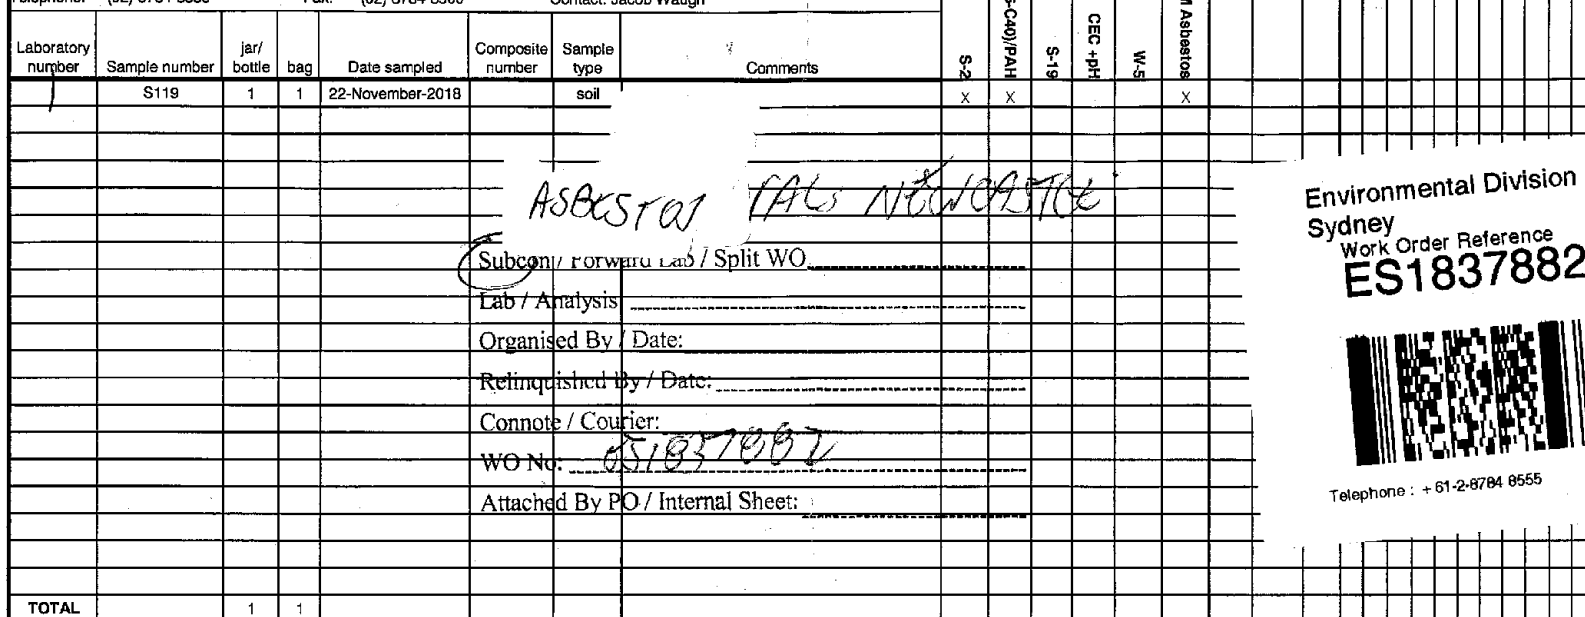 Contact: Jacob Waugh
Laboratory number
Sample number
jar/ bottle
bag
Date sampled
Composite number
Sample type
Comments
S-2
-C40)/PAH
S-19
CEC +pH
W-5
M Asbestos
1 S119 1 1 22-November-2018 soil X X X
ASBESTOS NEWCASTLE
Subcon / Forward Lab / Split WO
Lab / Analysis
Organised By / Date:
Relinquished By / Date:
Connote / Courier:
WO No: ES1837882
Attached By PO / Internal Sheet:
TOTAL 1 1
Environmental Division
Sydney
Work Order Reference
ES1837882
Telephone : + 61-2-8784 8555